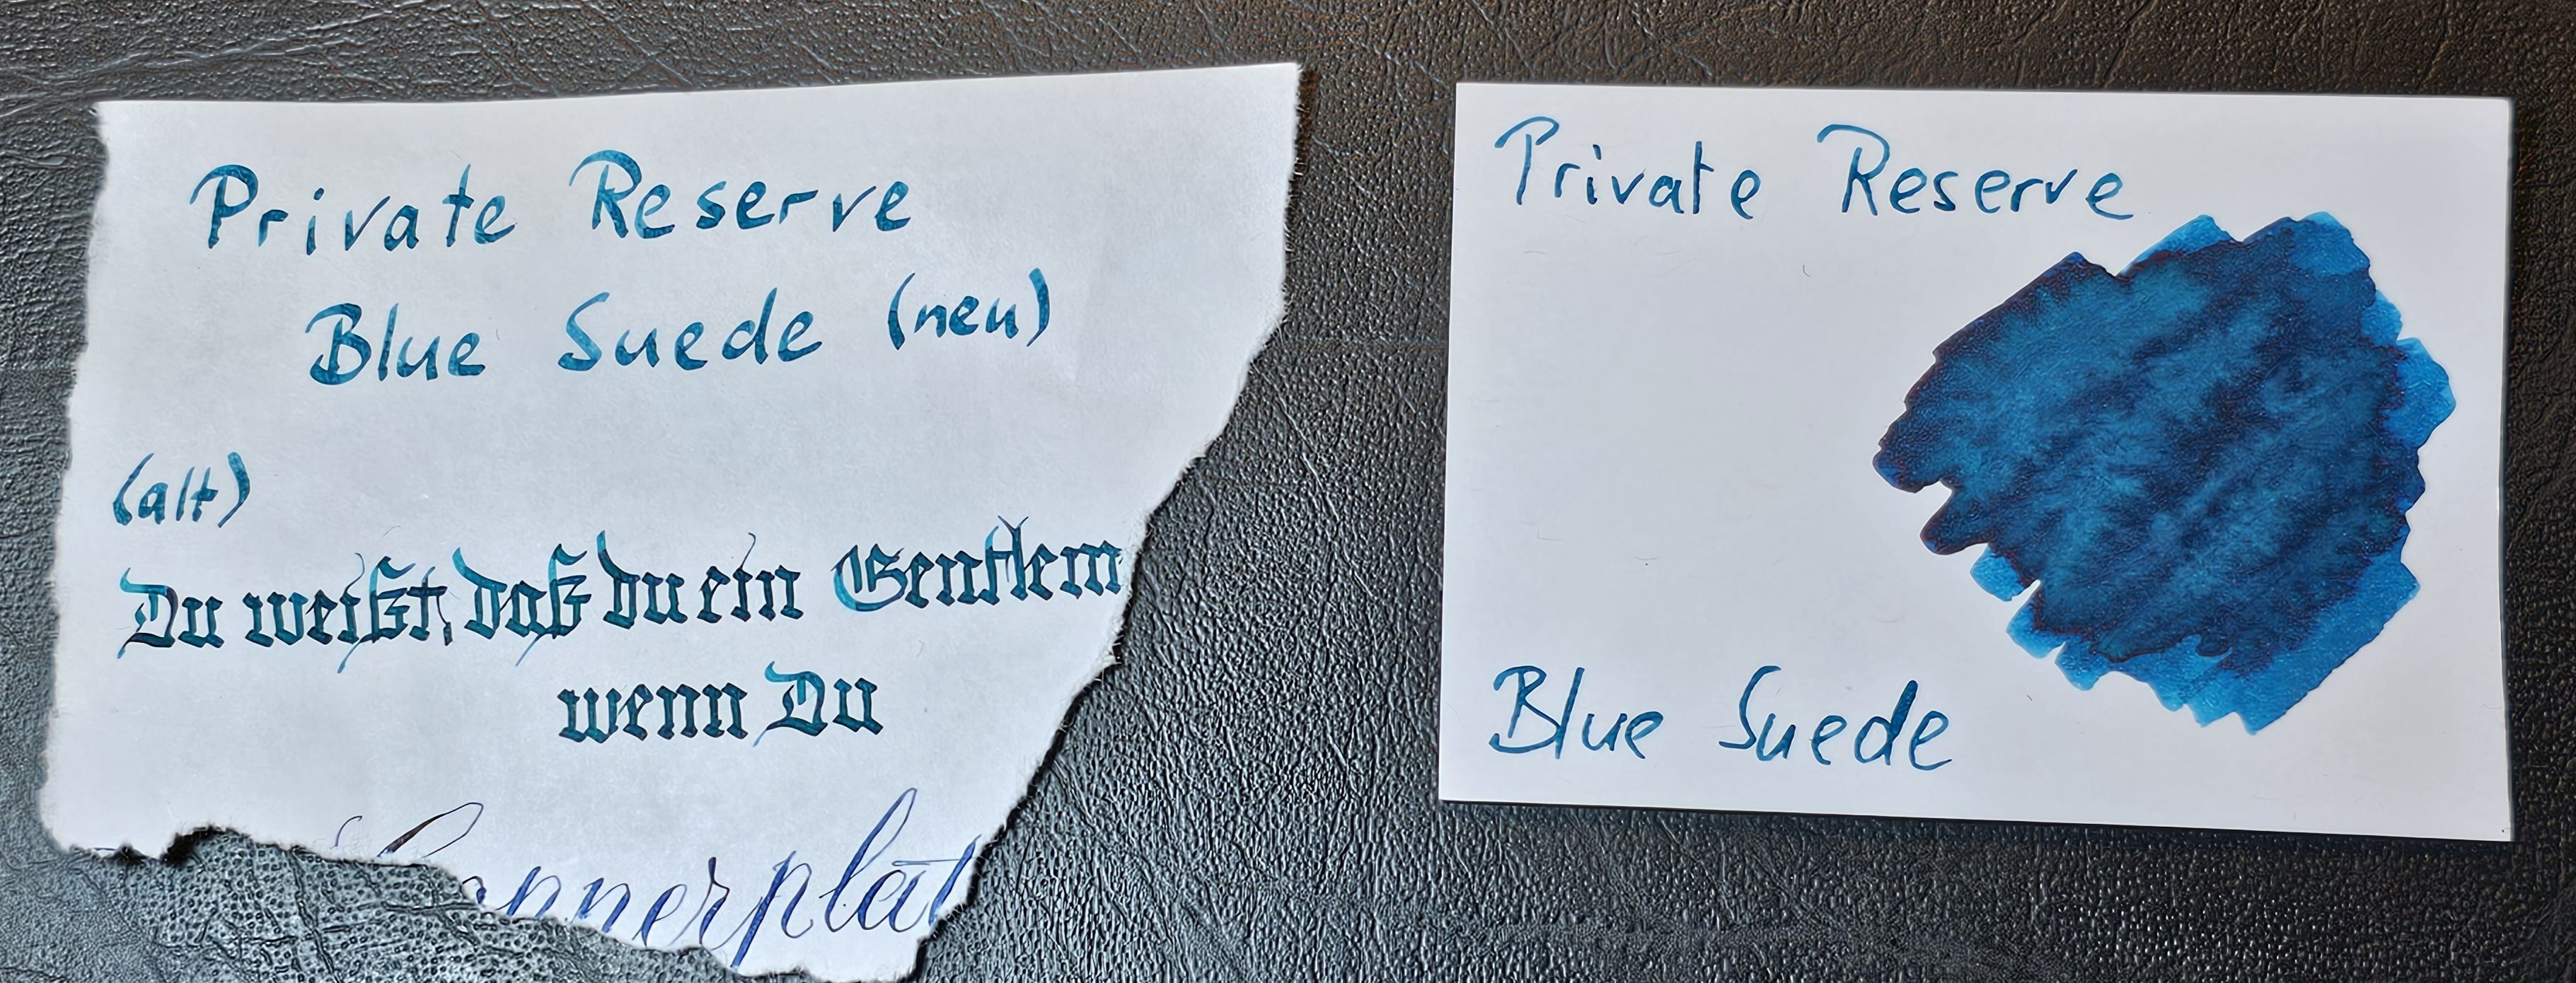 Private Reserve
Blue Suede (neu)
(alt)
Du weißt, daß du ein Gentlem
wenn Du
Private Reserve
Blue Suede